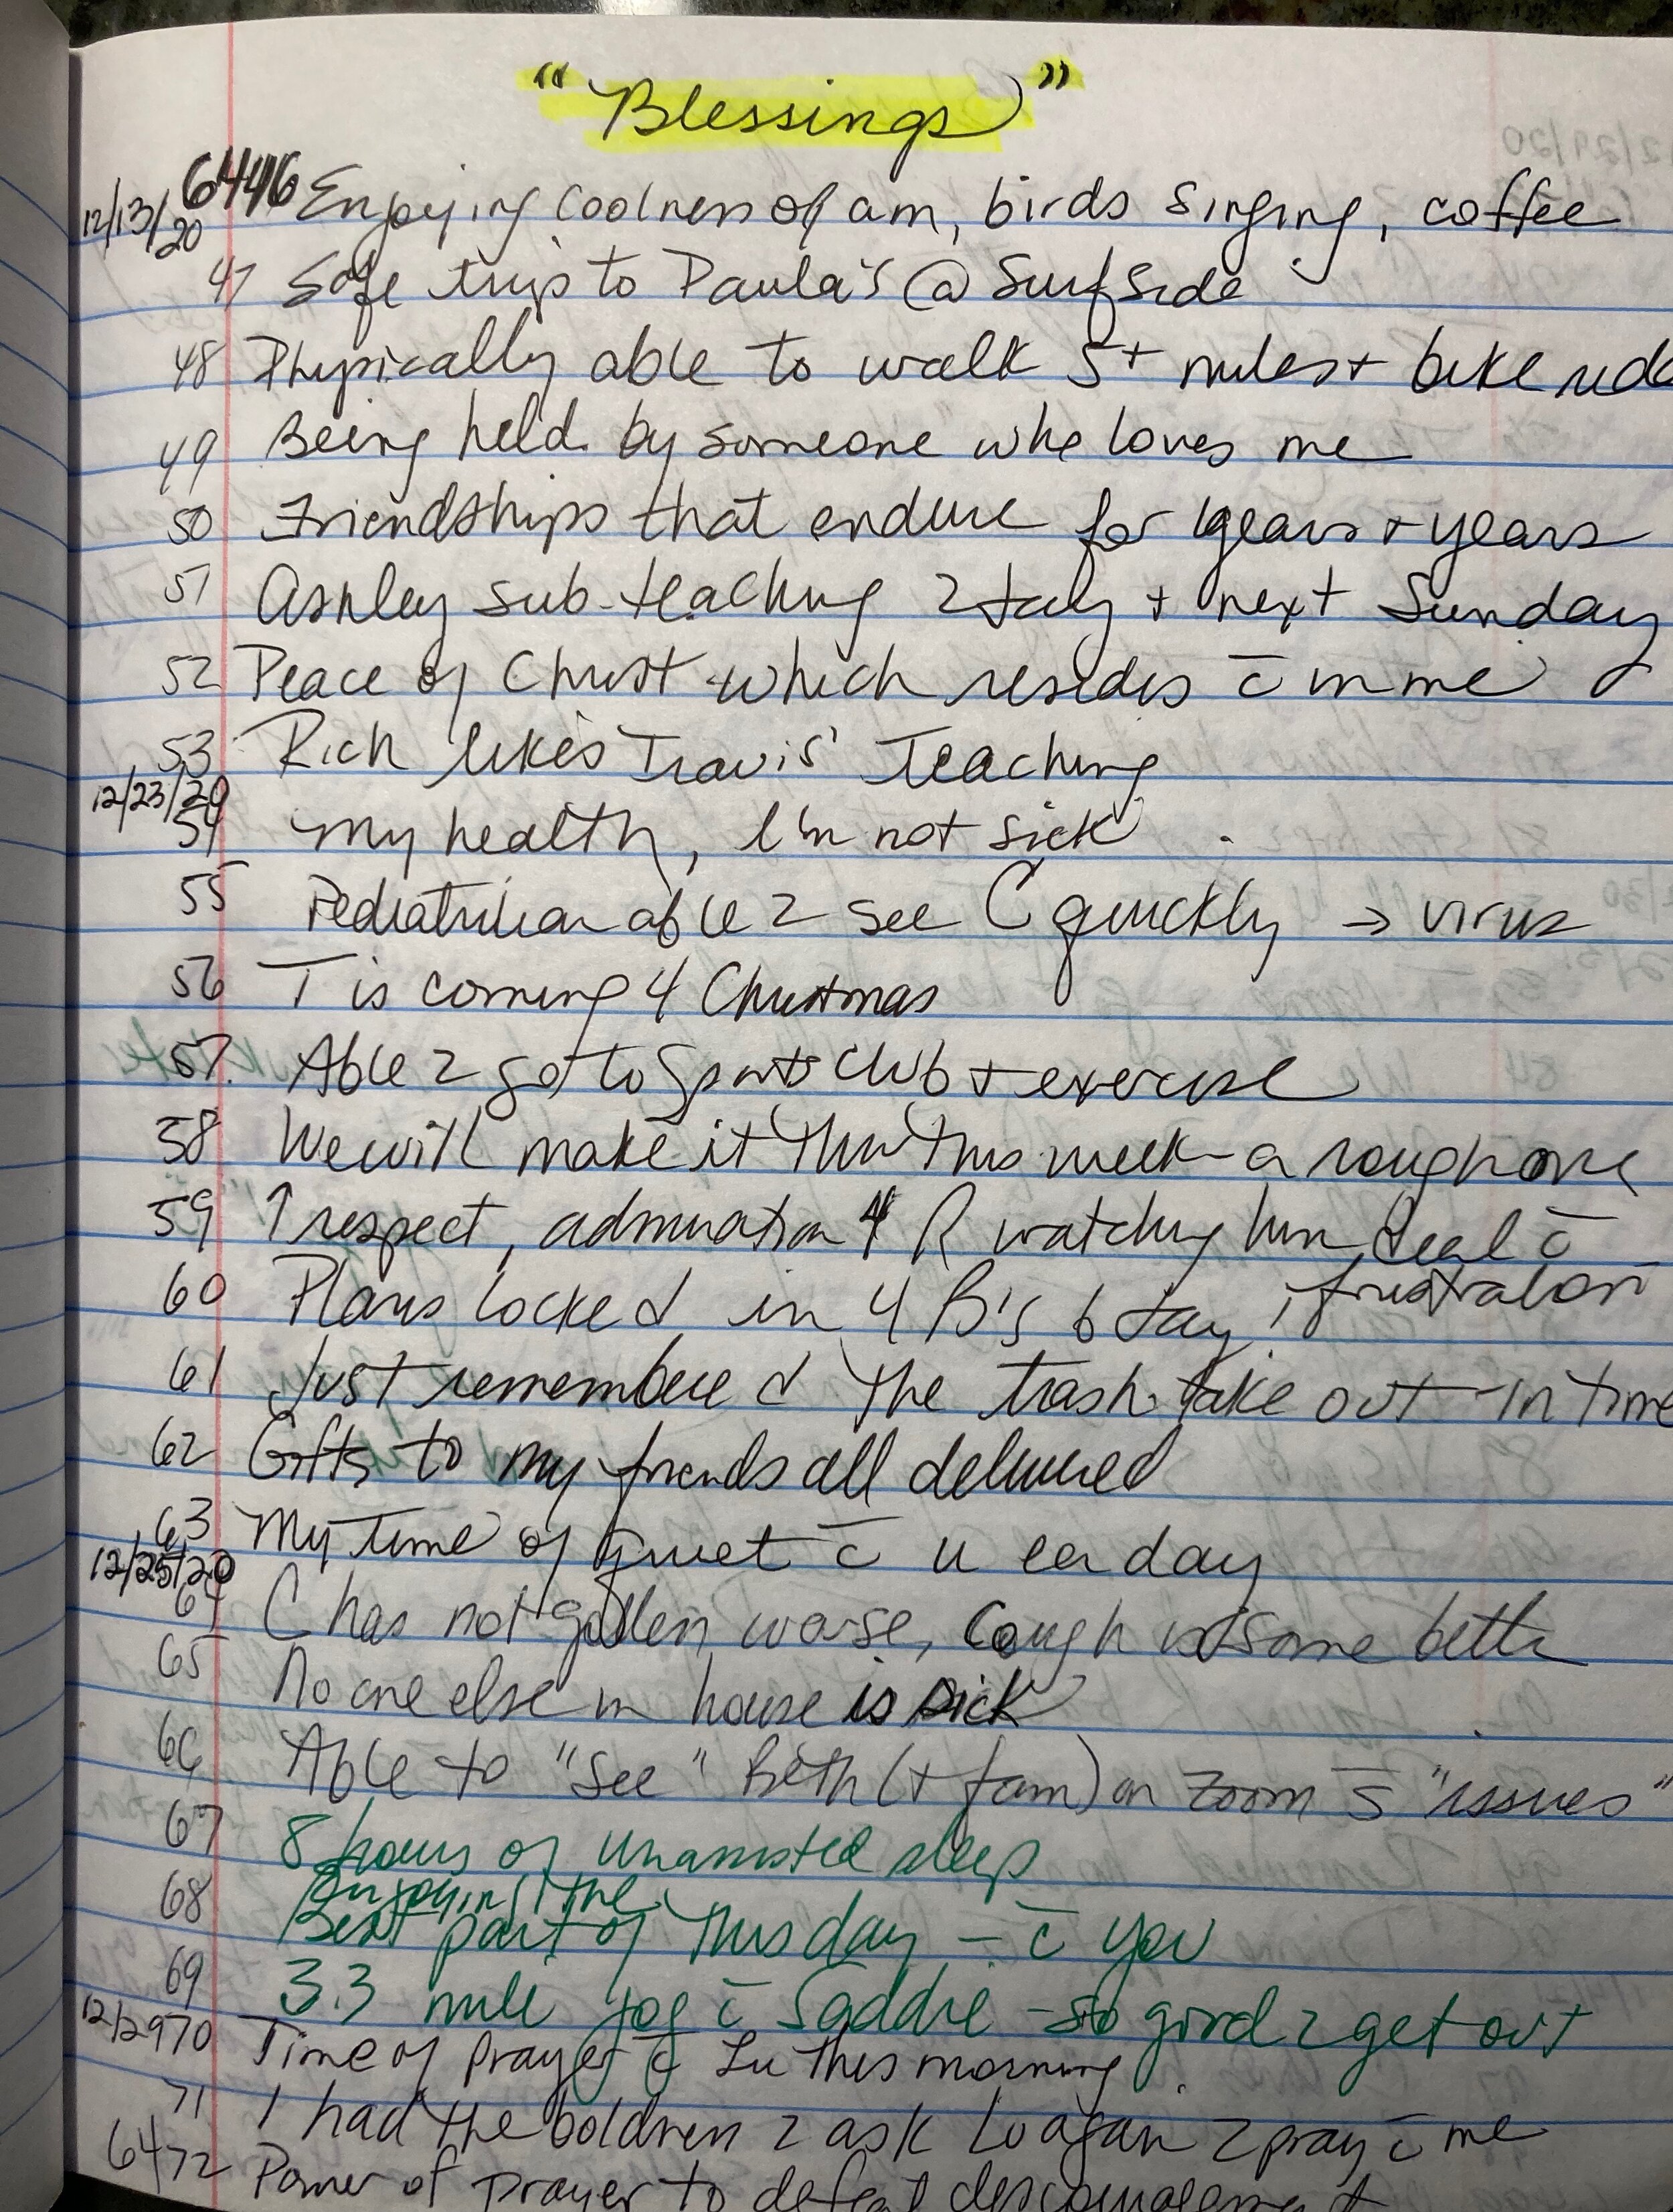 "Blessings"
12/13/20 6446 Enjoying coolness of am, birds singing, coffee
47 Safe trip to Paula's @ Surfside
48 Physically able to walk 5+ miles + bike ride
49 Being held by someone who loves me
50 Friendships that endure for years + years
51 Ashley sub-teaching 2day + next Sunday
52 Peace of Christ which resides c̄ in me
53 Rich likes Travis' Teaching
12/23/20
54 my health, I'm not sick
55 Pediatrician able 2 see C quickly → virus
56 T is coming 4 Christmas
57. Able 2 go to Sports Club + exercise
58 We will make it thru this week - a rough one
59 ↑ respect, admiration 4 R watching him deal c̄
frustration
60 Plans locked in 4 B's bday!
61 Just remembered the trash take out - in time
62 Gifts to my friends all delivered
63 My time of quiet c̄ u ea day
12/25/20
64 C has not gotten worse, cough is some better
65 No one else in house is sick
66 Able to "see" Beth (+ fam) on Zoom s̄ "issues"
67 8 hours of unassisted sleep
68 Enjoying the
Best part of this day - c̄ you
69 3.3 mile jog c̄ Saddie - so good 2 get out
12/29 70 Time of prayer c̄ Lu this morning
71 I had the boldness 2 ask Lu again 2 pray c̄ me
6472 Power of prayer to defeat discouragement